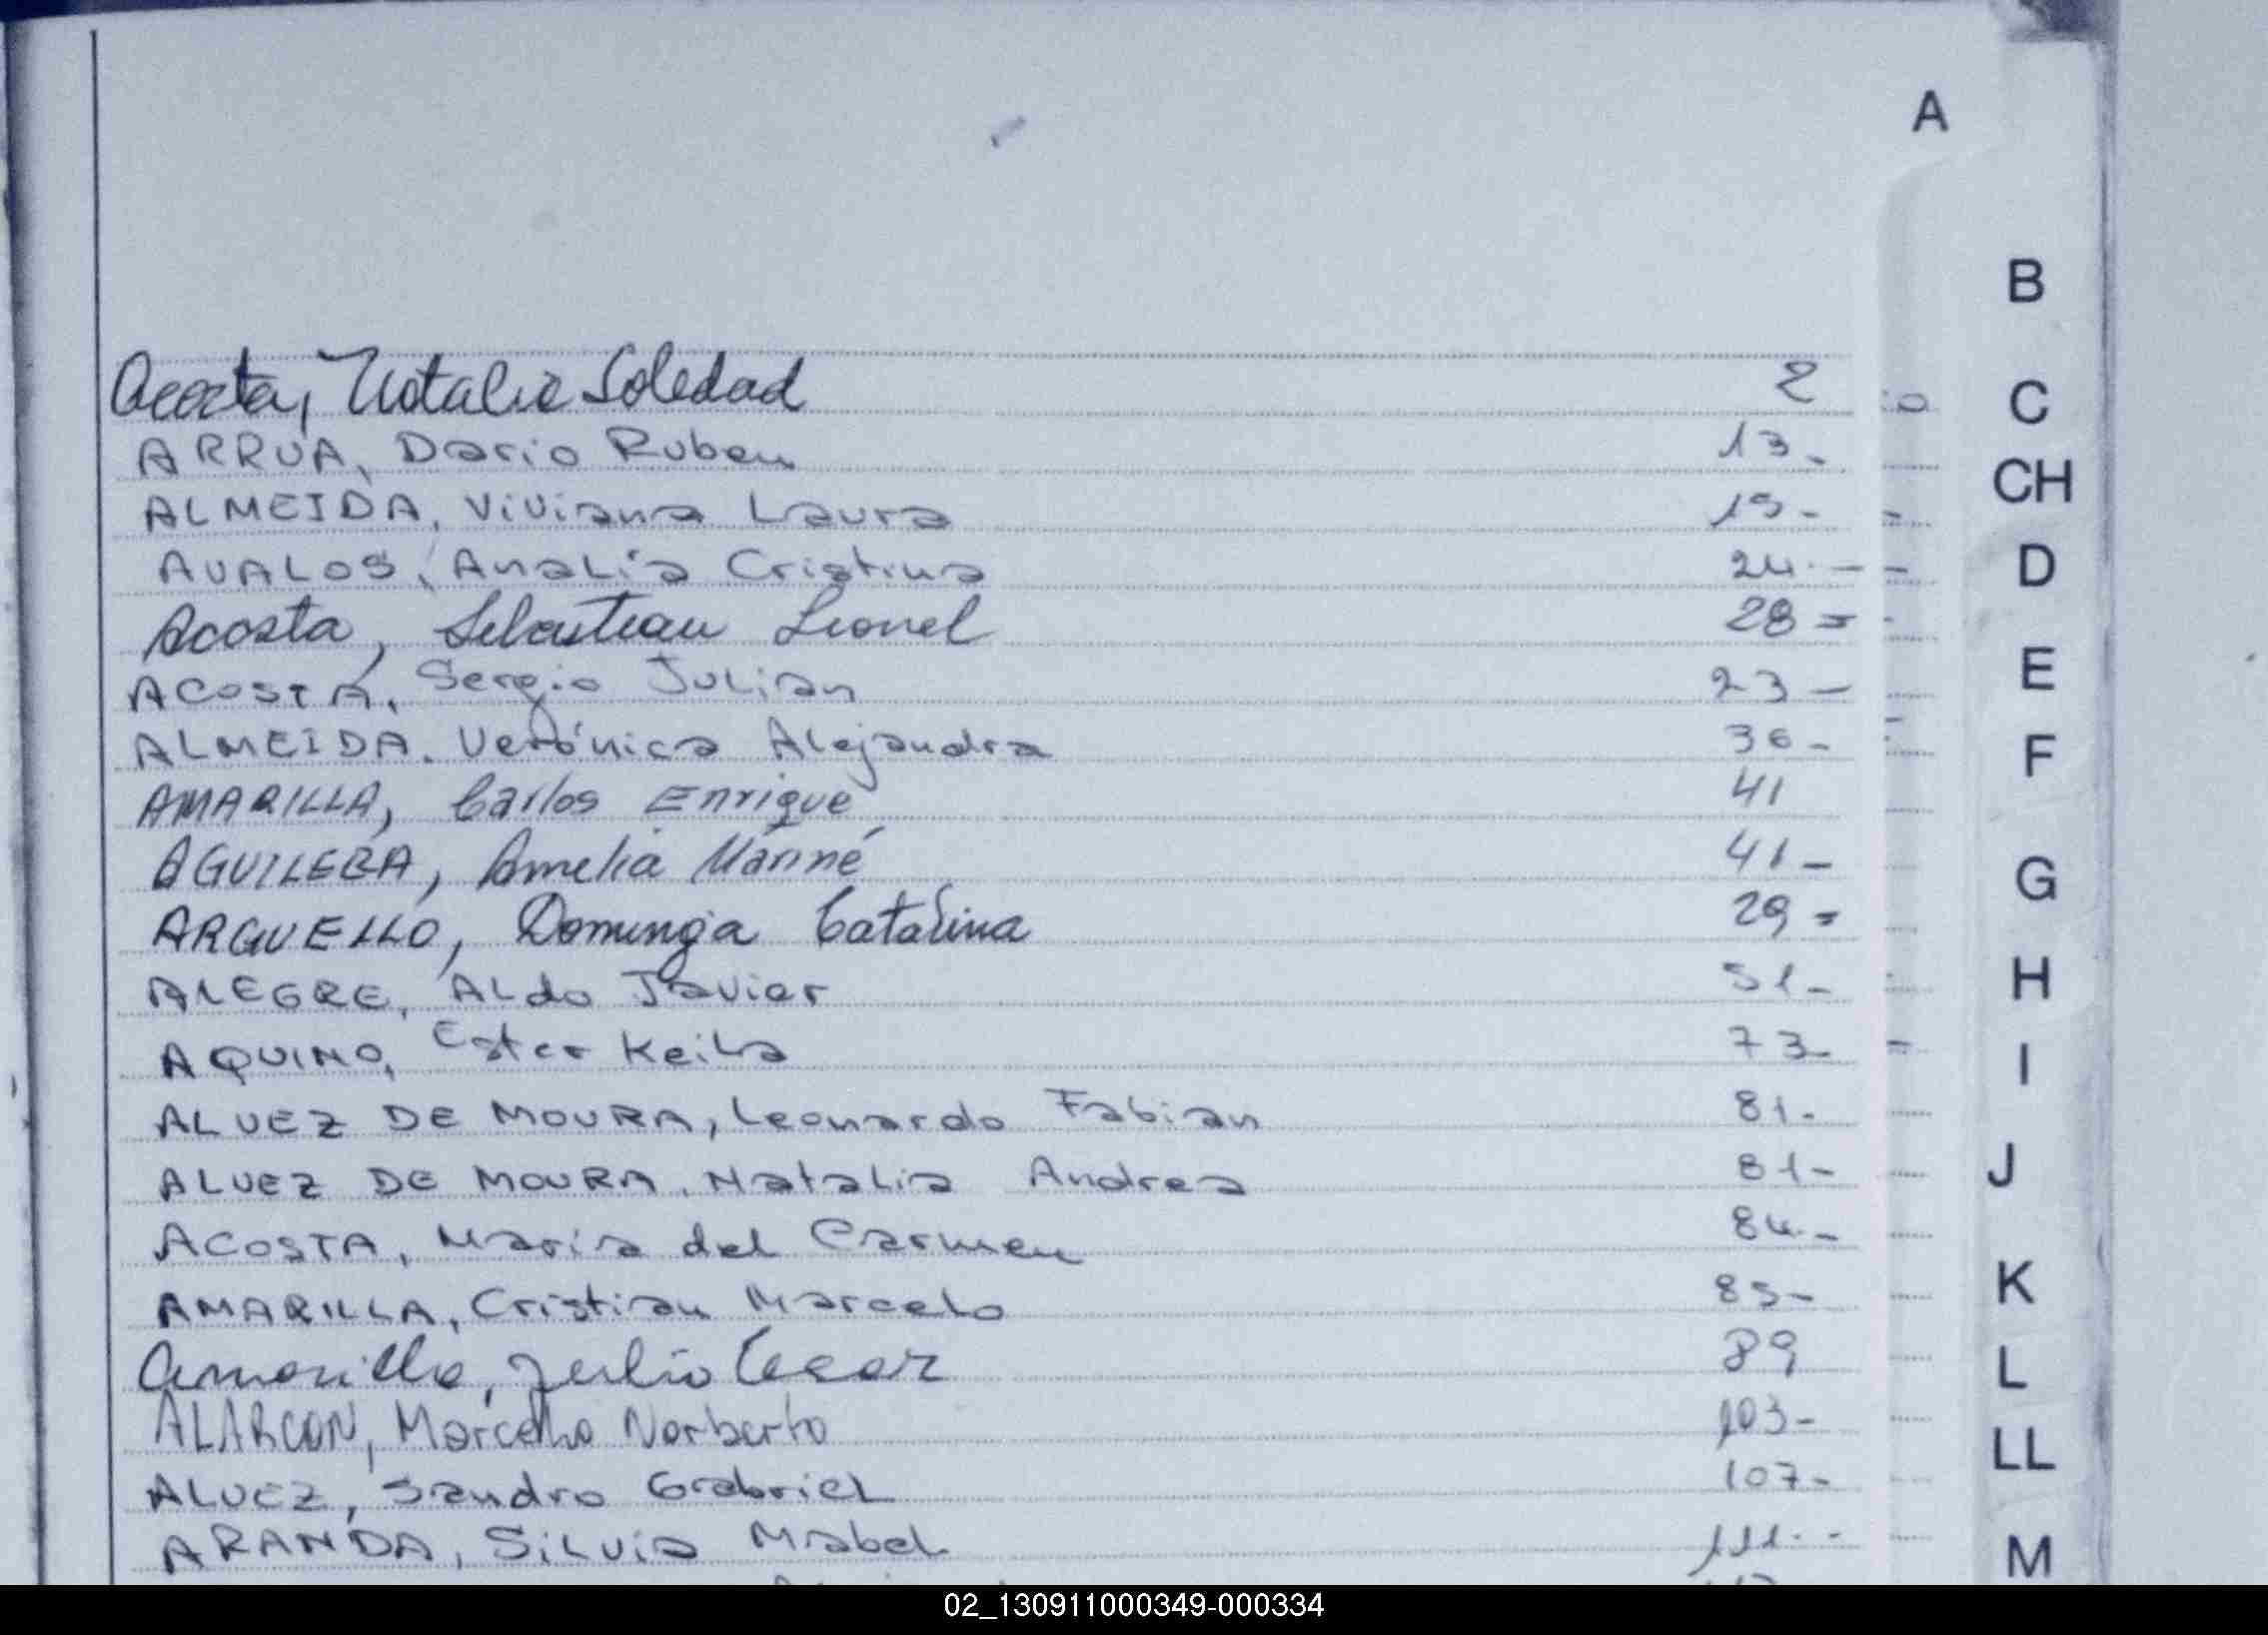 A
B
C
CH
D
E
F
G
H
I
J
K
L
LL
M
Acosta, Natalia Soledad 2
ARRUA, Dario Ruben 13-
ALMEIDA, Viviana Laura 19-
AVALOS, Analía Cristina 24.-
Acosta, Sebastian Leonel 28=
ACOSTA, Sergio Julian 23-
ALMEIDA. Verónica Alejandra 36-
AMARILLA, Carlos Enrique 41
AGUILERA, Amelia Mariné 41-
ARGUELLO, Dominga Catalina 29=
ALEGRE, Aldo Javier 51-
AQUINO, Ester Keila 73-
ALVEZ DE MOURA, Leonardo Fabian 81.
ALVEZ DE MOURA, Natalia Andrea 81-
ACOSTA, María del Carmen 84.-
AMARILLA, Cristian Marcelo 85-
Amarilla, Julio Cesar 89
ALARCON, Marcelho Norberto 103-
ALVEZ, Sandro Gabriel 107-
ARANDA, Silvia Mabel 111.-
02_130911000349-000334